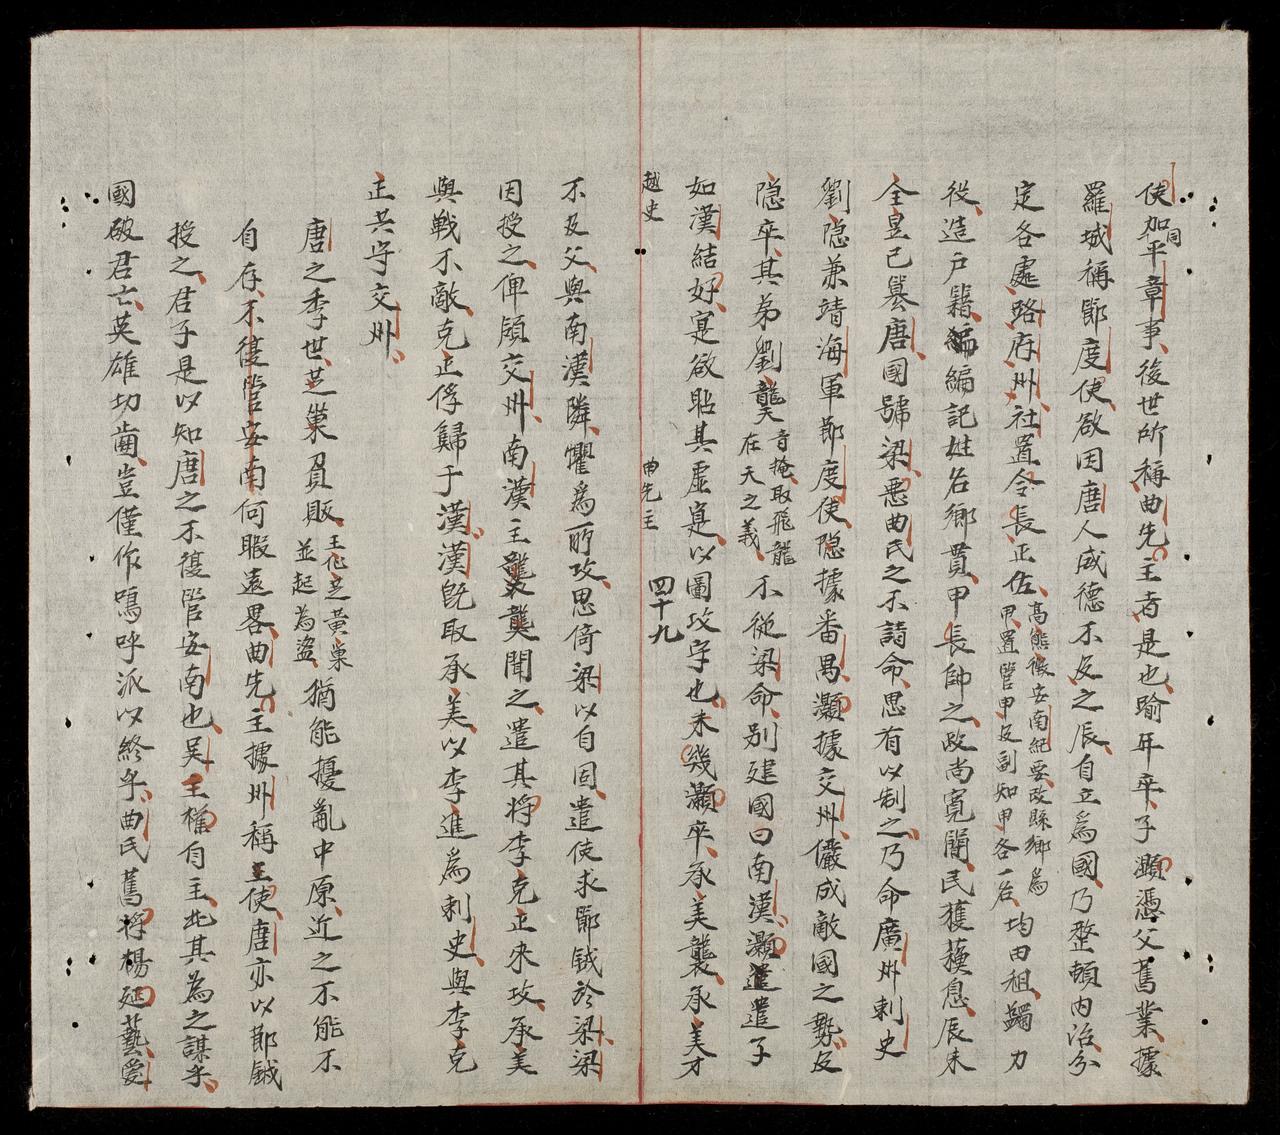 使加同平章事後世所稱曲先主者是也踰年卒子灝憑父舊業據
羅城稱節度使欲因唐人威德不及之辰自立爲國乃整頓内治分
定各處路府州社置令長正佐高熊徵安南紀要改縣鄉爲甲置管甲及副知甲各一名均田租蠲力
役造戶籍編編記姓名鄉貫甲長帥之政尚寬簡民獲蘓息辰朱
全昱已篡唐國號梁惡曲氏之不請命思有以制之乃命廣州刺史
劉隐兼靖海軍節度使隐據番禺灝據交州儼成敵國之勢及
隐卒其弟劉龑音掩取飛龍在天之義不從梁命別建國曰南漢灝遣遣子
如漢結好寔欲貼其虛寔以圖攻守也未幾灝卒承美襲承美才
越史
曲先主
四十九
不及父與南漢隣懼爲所攻思倚梁以自固遣使求節鉞於梁梁
因授之俾領交州南漢主龑龑聞之遣其將李克正來攻承美
與戦不敵克正俘歸于漢漢既取承美以李進爲刺史與李克
正共守交州
唐之季世芝巢負販王仙芝黄巢並起為盜猶能擾亂中原近之不能不
自存不復管安南何暇遠畧曲先主據州稱主使唐亦以節鉞
授之君子是以知唐之不復管安南也吴王權自主此其為之謀乎
國破君亡英雄切齒豈僅作嗚呼派以終乎曲氏舊將楊延藝愛